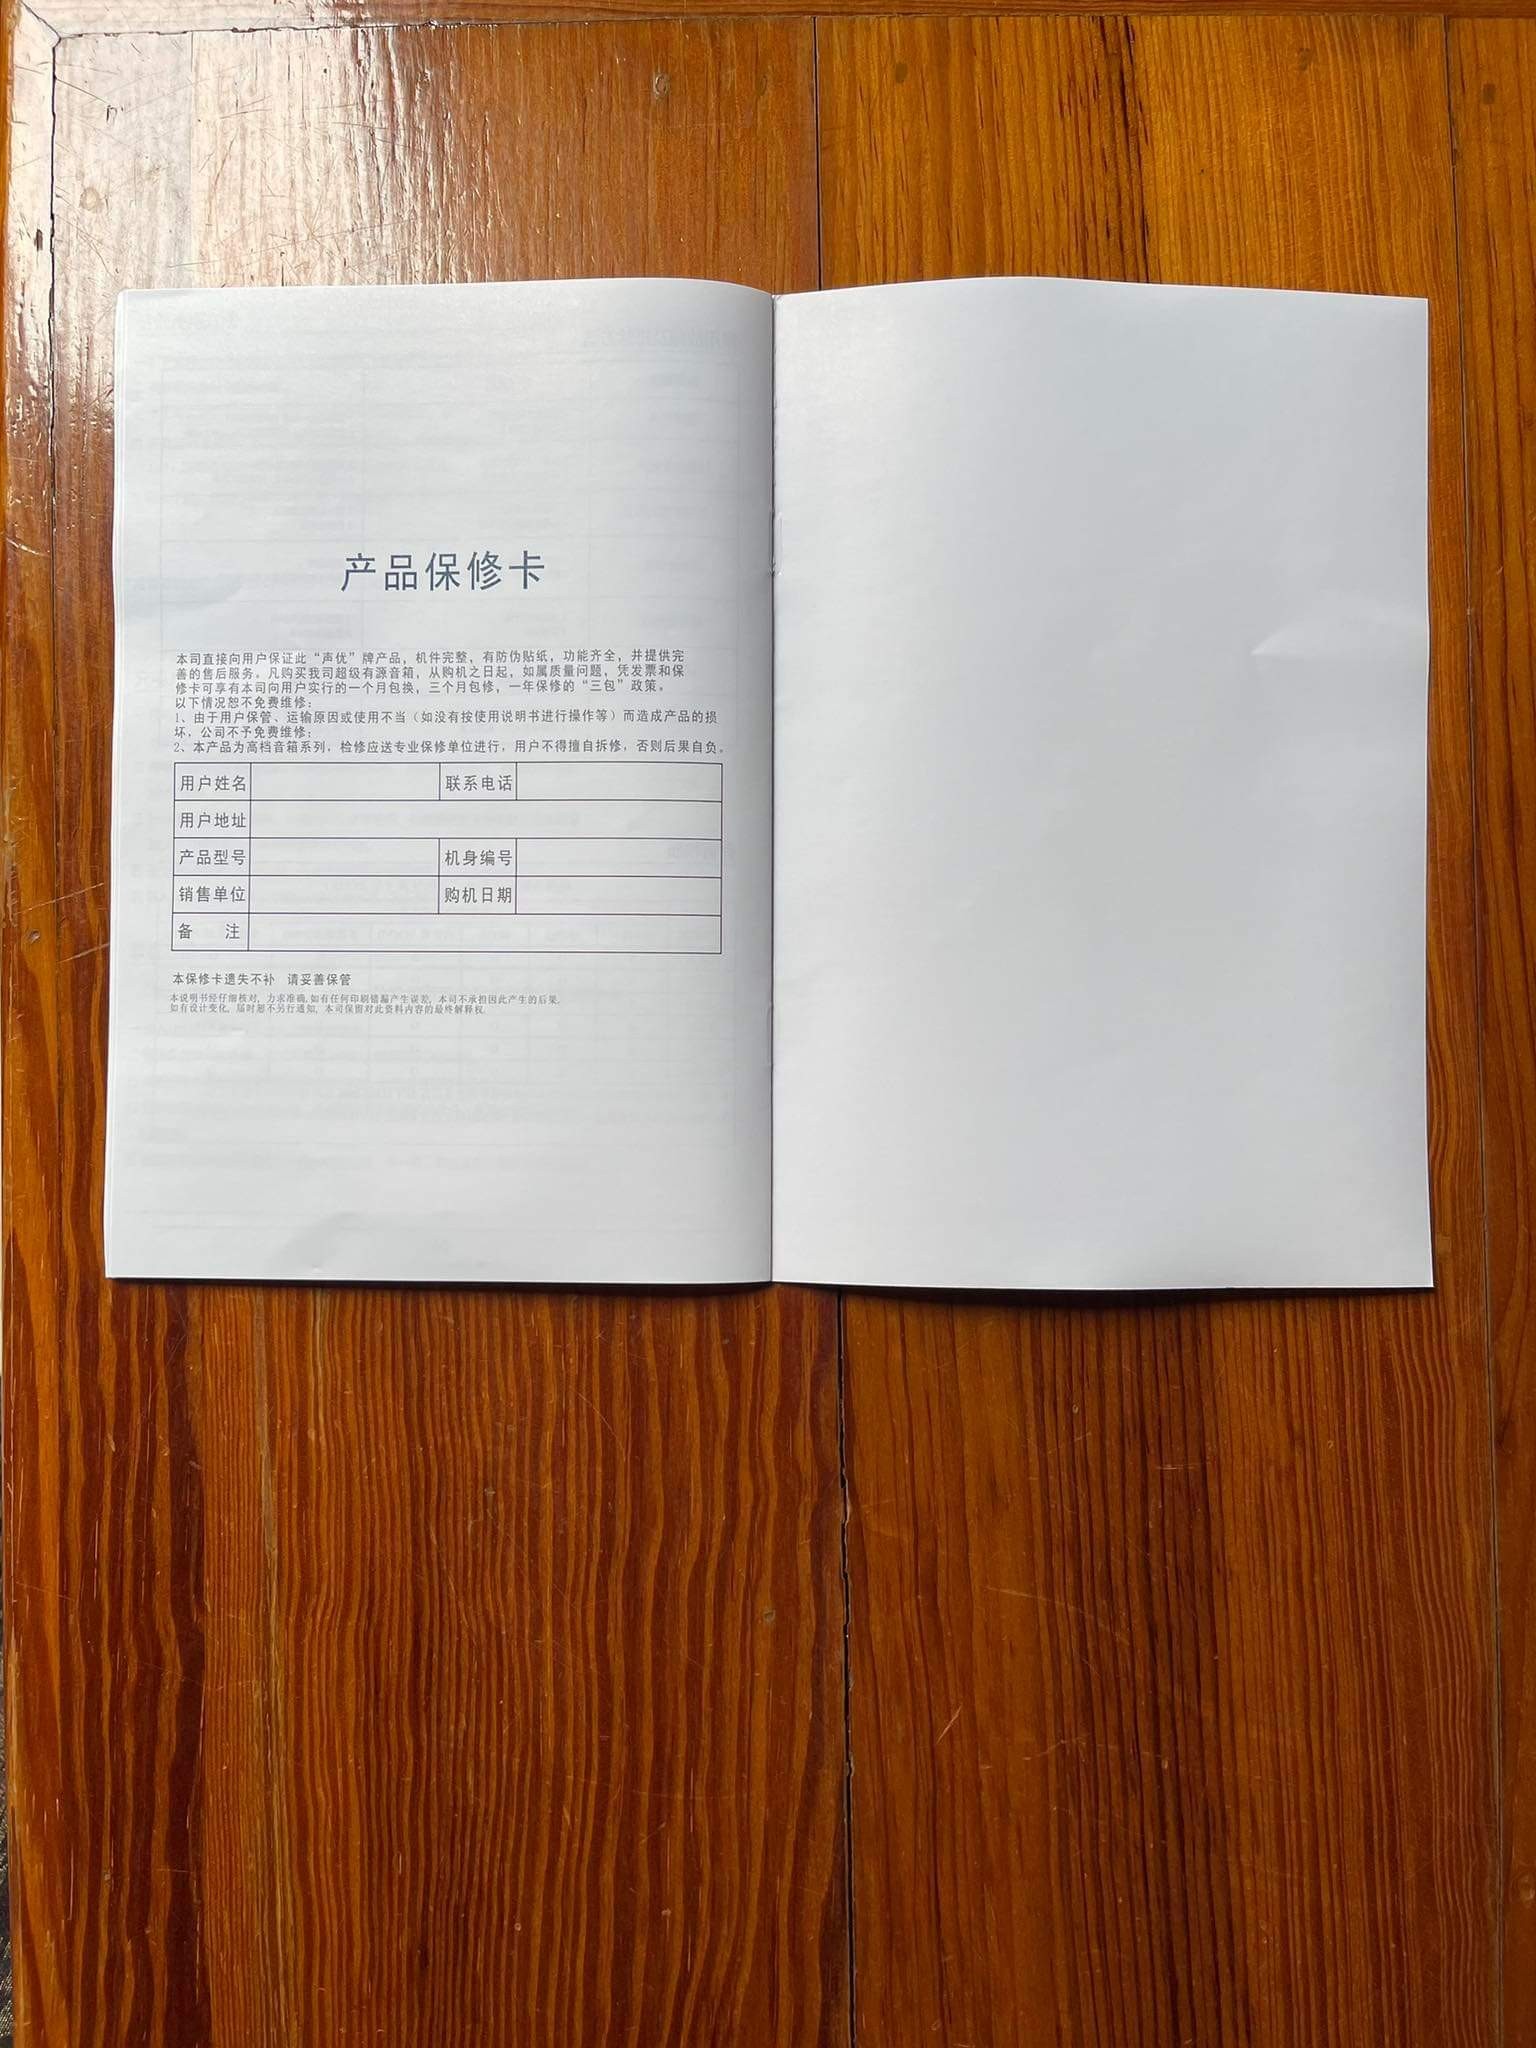 产品保修卡
本司直接向用户保证此“声优”牌产品，机件完整，有防伪贴纸，功能齐全，并提供完
善的售后服务。凡购买我司超级有源音箱，从购机之日起，如属质量问题，凭发票和保
修卡可享有本司向用户实行的一个月包换，三个月包修，一年保修的“三包”政策。
以下情况恕不免费维修：
1、由于用户保管、运输原因或使用不当（如没有按使用说明书进行操作等）而造成产品的损
坏，公司不予免费维修；
2、本产品为高档音箱系列，检修应送专业保修单位进行，用户不得擅自拆修，否则后果自负。
用户姓名 联系电话
用户地址
产品型号 机身编号
销售单位 购机日期
备 注
本保修卡遗失不补 请妥善保管
本说明书经仔细核对，力求准确,如有任何印刷错漏产生误差，本司不承担因此产生的后果.
如有设计变化，届时恕不另行通知，本司保留对此资料内容的最终解释权.